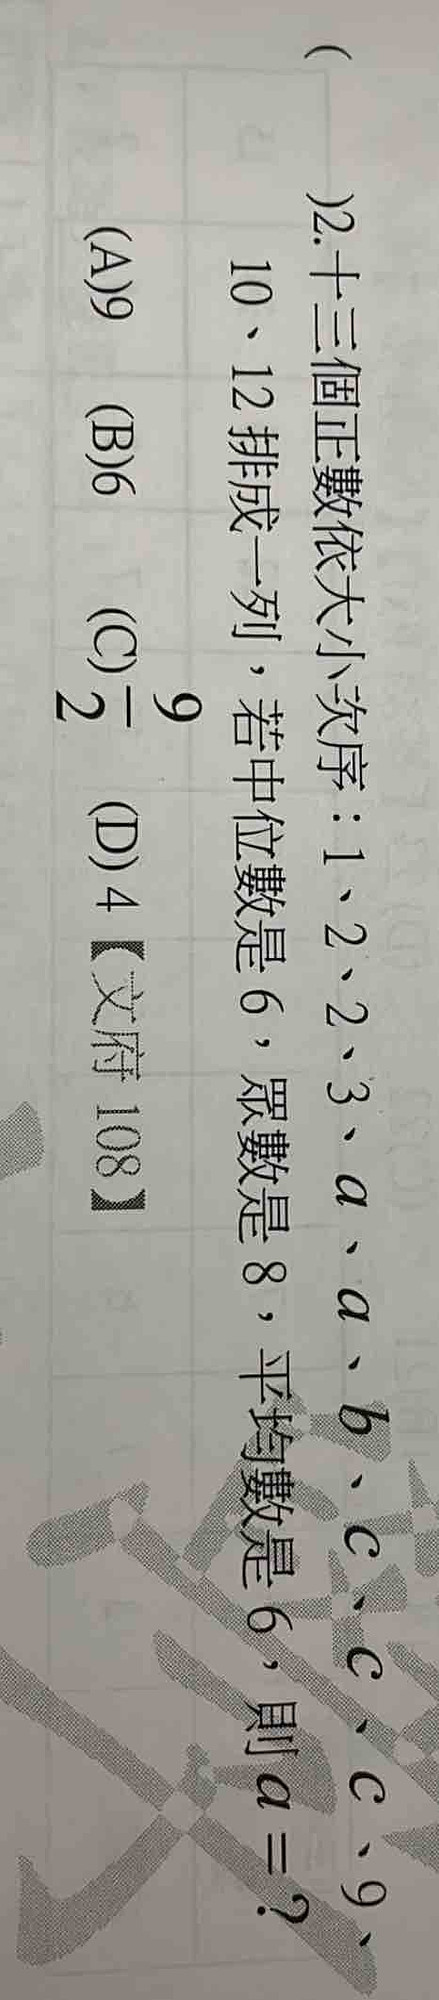 (　　)2.十三個正數依大小次序：1、2、2、3、a、a、b、c、c、c、9、
10、12 排成一列，若中位數是 6，眾數是 8，平均數是 6，則 a =？
(A)9　(B)6　(C)9/2　(D) 4【文府 108】